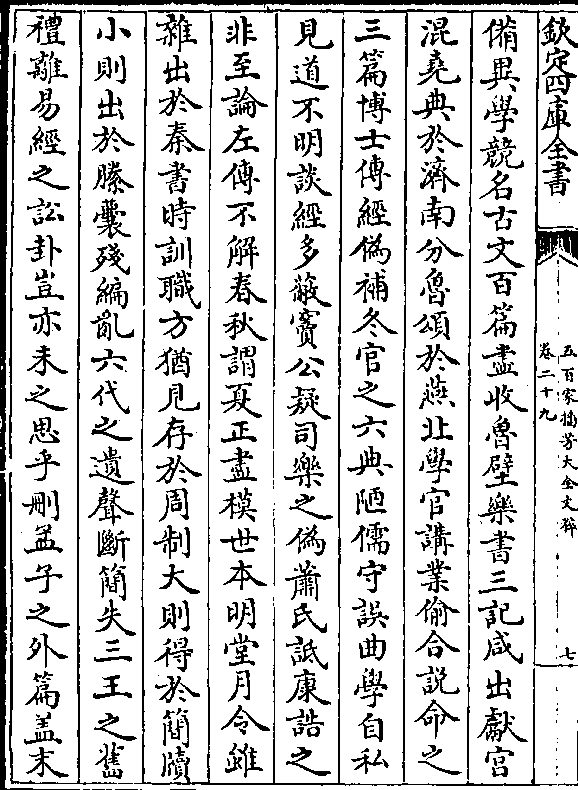 欽定四庫全書
五百家播芳大全文粹
卷二十九
七
備異學競名古文百篇盡收魯壁樂書三記咸出獻宮
混堯典於濟南分魯頌於燕北學官講業偷合説命之
三篇博士傳經偽補冬官之六典陋儒守誤曲學自私
見道不明談經多蔽竇公疑司樂之偽蕭氏詆康誥之
非至論左傳不解春秋謂夏正盡模世本明堂月令雖
雜出於秦書時訓職方猶見存於周制大則得於簡牘
小則出於縢囊殘編亂六代之遺聲斷簡失三王之舊
禮離易經之訟卦豈亦未之思乎刪孟子之外篇盖末